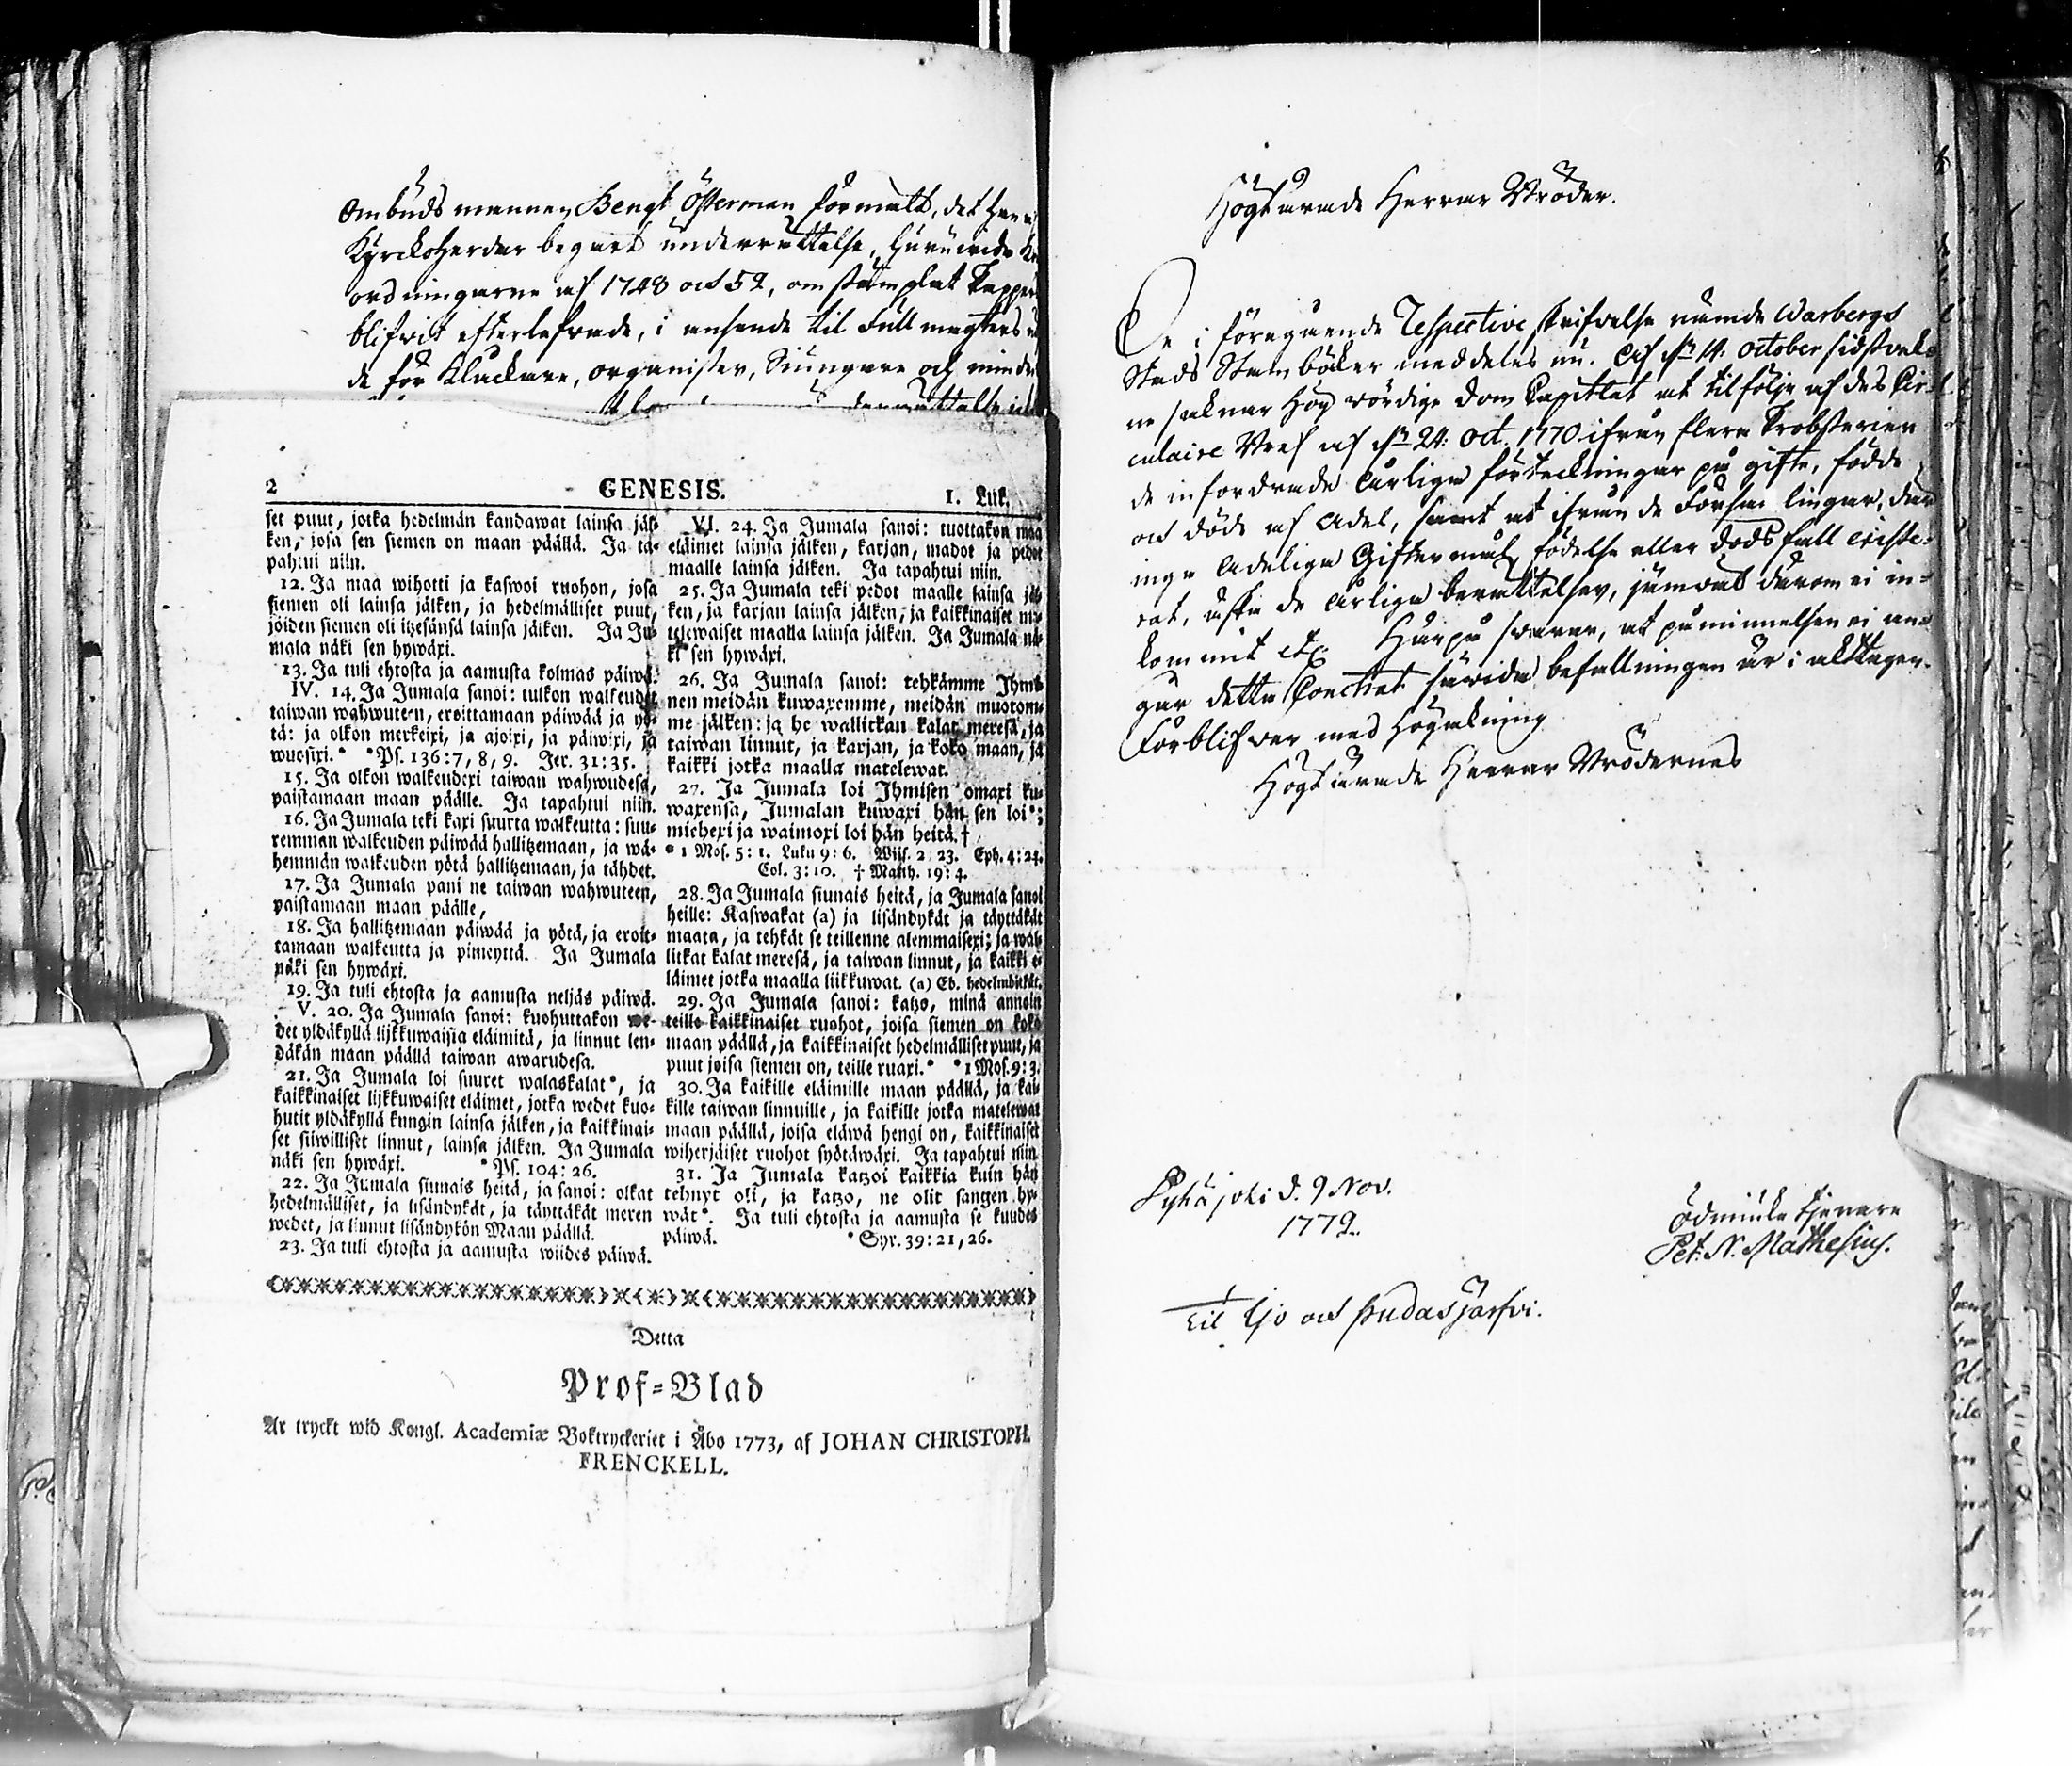 Ombudsmannen Bengt Österman förmält, det han
Kyrckoherdar begärt underrättelse, huruvida
ordningarne af 1748 och 52, om stämplat Papper
blifvit efterlefvade, i anseende til Fullmagters
de för Kluckare, organister, Siungare och mindre
2 GENESIS. 1. Luk.
set puut, jotka hedelmän kandawat lainsa jäl-
ken, josa sen siemen on maan päällä. Ja ta-
pahtui niin.
12. Ja maa wihotti ja kaswoi ruohon, josa
siemen oli lainsa jälken, ja hedelmälliset puut,
joiden siemen oli itzesänsä lainsa jälken. Ja Ju-
mala näki sen hywäxi.
13. Ja tuli ehtosta ja aamusta kolmas päiwä.
IV. 14. Ja Jumala sanoi: tulkon walkeudet
taiwan wahwuteen, eroittamaan päiwää ja yö-
tä: ja olkon merkeixi, ja ajoixi, ja päiwixi, ja
wuosixi.* *Ps. 136:7, 8, 9. Jer. 31:35.
15. Ja olkon walkeudexi taiwan wahwudesa,
paistamaan maan päälle. Ja tapahtui niin.
16. Ja Jumala teki kaxi suurta walkeutta: suu-
remman walkeuden päiwää hallitzemaan, ja wä-
hemmän walkeuden yötä hallitzemaan, ja tähdet.
17. Ja Jumala pani ne taiwan wahwuteen,
paistamaan maan päälle,
18. Ja hallitzemaan päiwää ja yötä, ja eroit-
tamaan walkeutta ja pimeyttä. Ja Jumala
näki sen hywäxi.
19. Ja tuli ehtosta ja aamusta neljäs päiwä.
V. 20. Ja Jumala sanoi: kuohuttakon we-
det yldäkyllä lijkkuwaisia eläimitä, ja linnut len-
däkän maan päällä taiwan awarudesa.
21. Ja Jumala loi suuret walaskalat*, ja
kaikkinaiset lijkkuwaiset eläimet, jotka wedet kuo-
hutit yldäkyllä kungin lainsa jälken, ja kaikkinai-
set siiwilliset linnut, lainsa jälken. Ja Jumala
näki sen hywäxi. *Ps. 104:26.
22. Ja Jumala siunais heitä, ja sanoi: olkat
hedelmälliset, ja lisändykät, ja täyttäkät meren
wedet, ja linnut lisändykön Maan päällä.
23. Ja tuli ehtosta ja aamusta wiides päiwä.
VI. 24. Ja Jumala sanoi: tuottakon maa
eläimet lainsa jälken, karjan, madot ja pedot
maalle lainsa jälken. Ja tapahtui niin.
25. Ja Jumala teki pedot maalle lainsa jäl-
ken, ja karjan lainsa jälken, ja kaikkinaiset ma-
telewaiset maalla lainsa jälken. Ja Jumala nä-
ki sen hywäxi.
26. Ja Jumala sanoi: tehkämme Ihmi-
nen meidän kuwaxemme, meidän muotom-
me jälken: ja he wallitkan kalat meresä, ja
taiwan linnut, ja karjan, ja koko maan, ja
kaikki jotka maalla matelewat.
27. Ja Jumala loi Ihmisen omaxi ku-
waxensa, Jumalan kuwaxi hän sen loi*;
miehexi ja waimoxi loi hän heitä.†
* 1 Mos. 5:1. Luku 9:6. Wijs. 2:23. Eph. 4:24.
Col. 3:10. † Matth. 19:4.
28. Ja Jumala siunais heitä, ja Jumala sanoi
heille: Kaswakat (a) ja lisändykät ja täyttäkät
maata, ja tehkät se teillenne alemmaisexi; ja wal-
litkat kalat meresä, ja taiwan linnut, ja kaikki e-
läimet jotka maalla liikkuwat. (a) Eb. hedelmöitkät.
29. Ja Jumala sanoi: katzo, minä annoin
teille kaikkinaiset ruohot, joisa siemen on koko
maan päällä, ja kaikkinaiset hedelmälliset puut, ja
puut joisa siemen on, teille ruaxi.* *1 Mos. 9:3.
30. Ja kaikille eläimille maan päällä, ja kai-
kille taiwan linnuille, ja kaikille jotka matelewat
maan päällä, joisa eläwä hengi on, kaikkinaiset
wiherjäiset ruohot syötäwäxi. Ja tapahtui niin.
31. Ja Jumala katzoi kaikkia kuin hän
tehnyt oli, ja katzo, ne olit sangen hy-
wät*. Ja tuli ehtosta ja aamusta se kuudes
päiwä. *Syr. 39:21, 26.
Detta
Prof-Blad
Är tryckt wid Kongl. Academiæ Boktryckeriet i Åbo 1773, af JOHAN CHRISTOPH.
FRENCKELL.
Högtärade Herrar Bröder.
De i föregående respective skrifvelse nämde Warbergs
Stads Stambörker meddeles nu. Af d. 14. October sidstvek-
ne saknar Högvördige Dom Capitlet at til följe af des Cir-
culaire Bref af d. 24. Oct. 1770 ifrån flere Probsterier
de infordrade årliga förteckningar på gifte, födde
och döde af Adel, samt at ifrån de Församlingar, där
inga Adeliga Giftermål, födelse eller dödsfall existe-
rat, äfven de årliga berättelser, jämväl därom ei in-
kommit etc. Härpå svarar, at påminnelsen ei an-
går detta Contract såvida befallningen är i akttagen.
Förblifver med högackning
Högtärade Herrar Brödernes
Pyhäjoki d. 9 Nov.
1772.
ödmiuke tjenare
Pet. N. Mathesius.
Til Ijo och Pudasjärfvi.